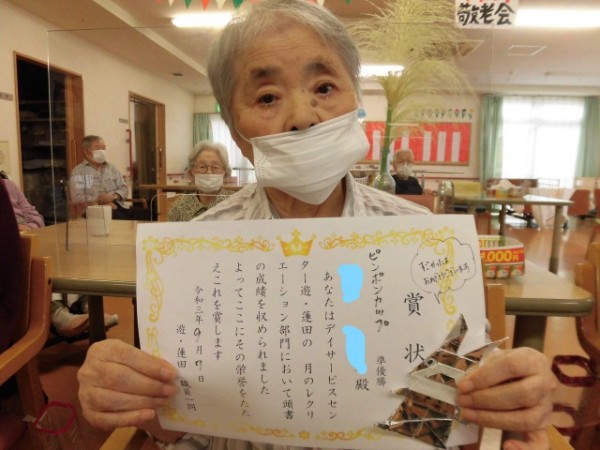 敬老会
ピンポンカップ
すごかったよ
おめでとうございます
賞状
準優勝
殿
あなたはデイサービスセン
ター遊・蓮田の 月のレクリ
エーション部門において頭書
の成績を収められました
よってここにその栄誉をたた
えこれを賞します
令和三年9月17日
遊・蓮田 職員一同
,000円